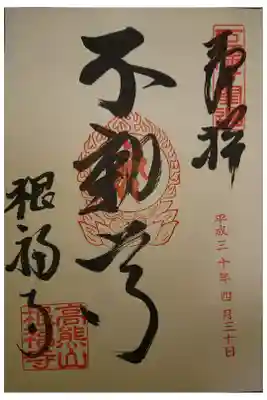 奉拝
平成三十年四月三十日
不動尊
根福寺
高熊山
根福寺